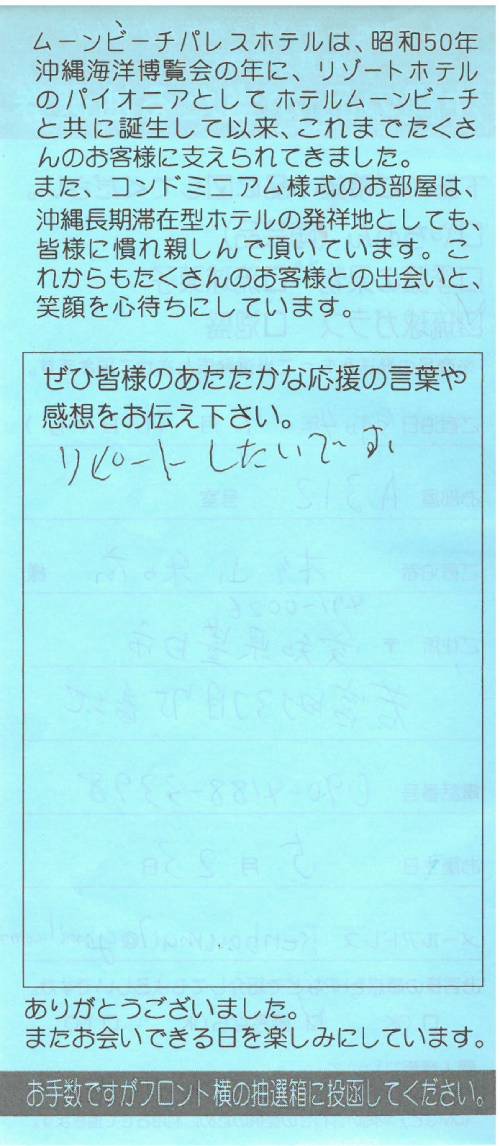 ムーンビーチパレスホテルは、昭和50年
沖縄海洋博覧会の年に、リゾートホテル
のパイオニアとしてホテルムーンビーチ
と共に誕生して以来、これまでたくさ
んのお客様に支えられてきました。
また、コンドミニアム様式のお部屋は、
沖縄長期滞在型ホテルの発祥地としても、
皆様に慣れ親しんで頂いています。こ
れからもたくさんのお客様との出会いと、
笑顔を心待ちにしています。
ぜひ皆様のあたたかな応援の言葉や
感想をお伝え下さい。
リピートしたいです。
ありがとうございました。
またお会いできる日を楽しみにしています。
お手数ですがフロント横の抽選箱に投函してください。